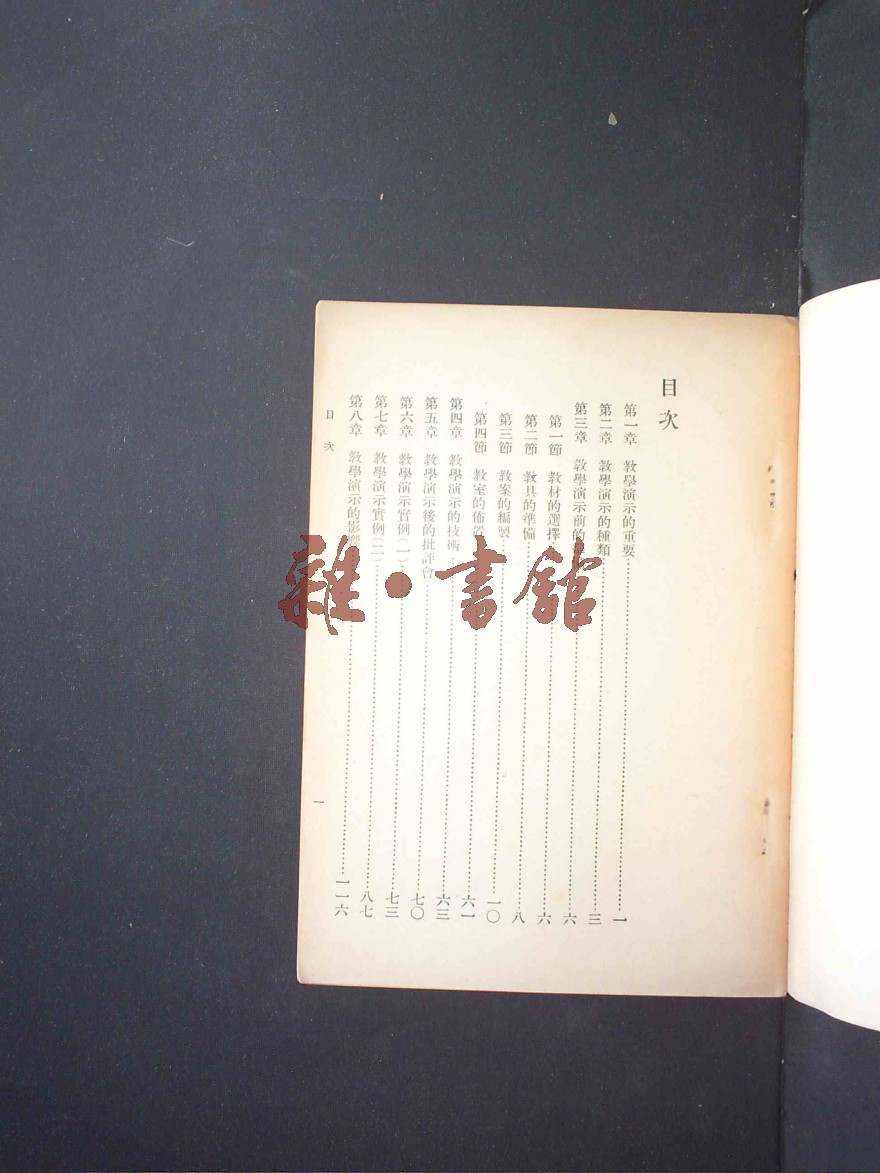 目次
第一章 教學演示的重要 一
第二章 教學演示的種類 三
第三章 教學演示前的 六
第一節 教材的選擇 六
第二節 教具的準備 八
第三節 教案的編製 一〇
第四節 教室的佈置 六一
第四章 教學演示的技術 六三
第五章 教學演示後的批評會 七〇
第六章 教學演示實例(一) 七三
第七章 教學演示實例(二) 八七
第八章 教學演示的影響 一一六
目次
一
雜·書館